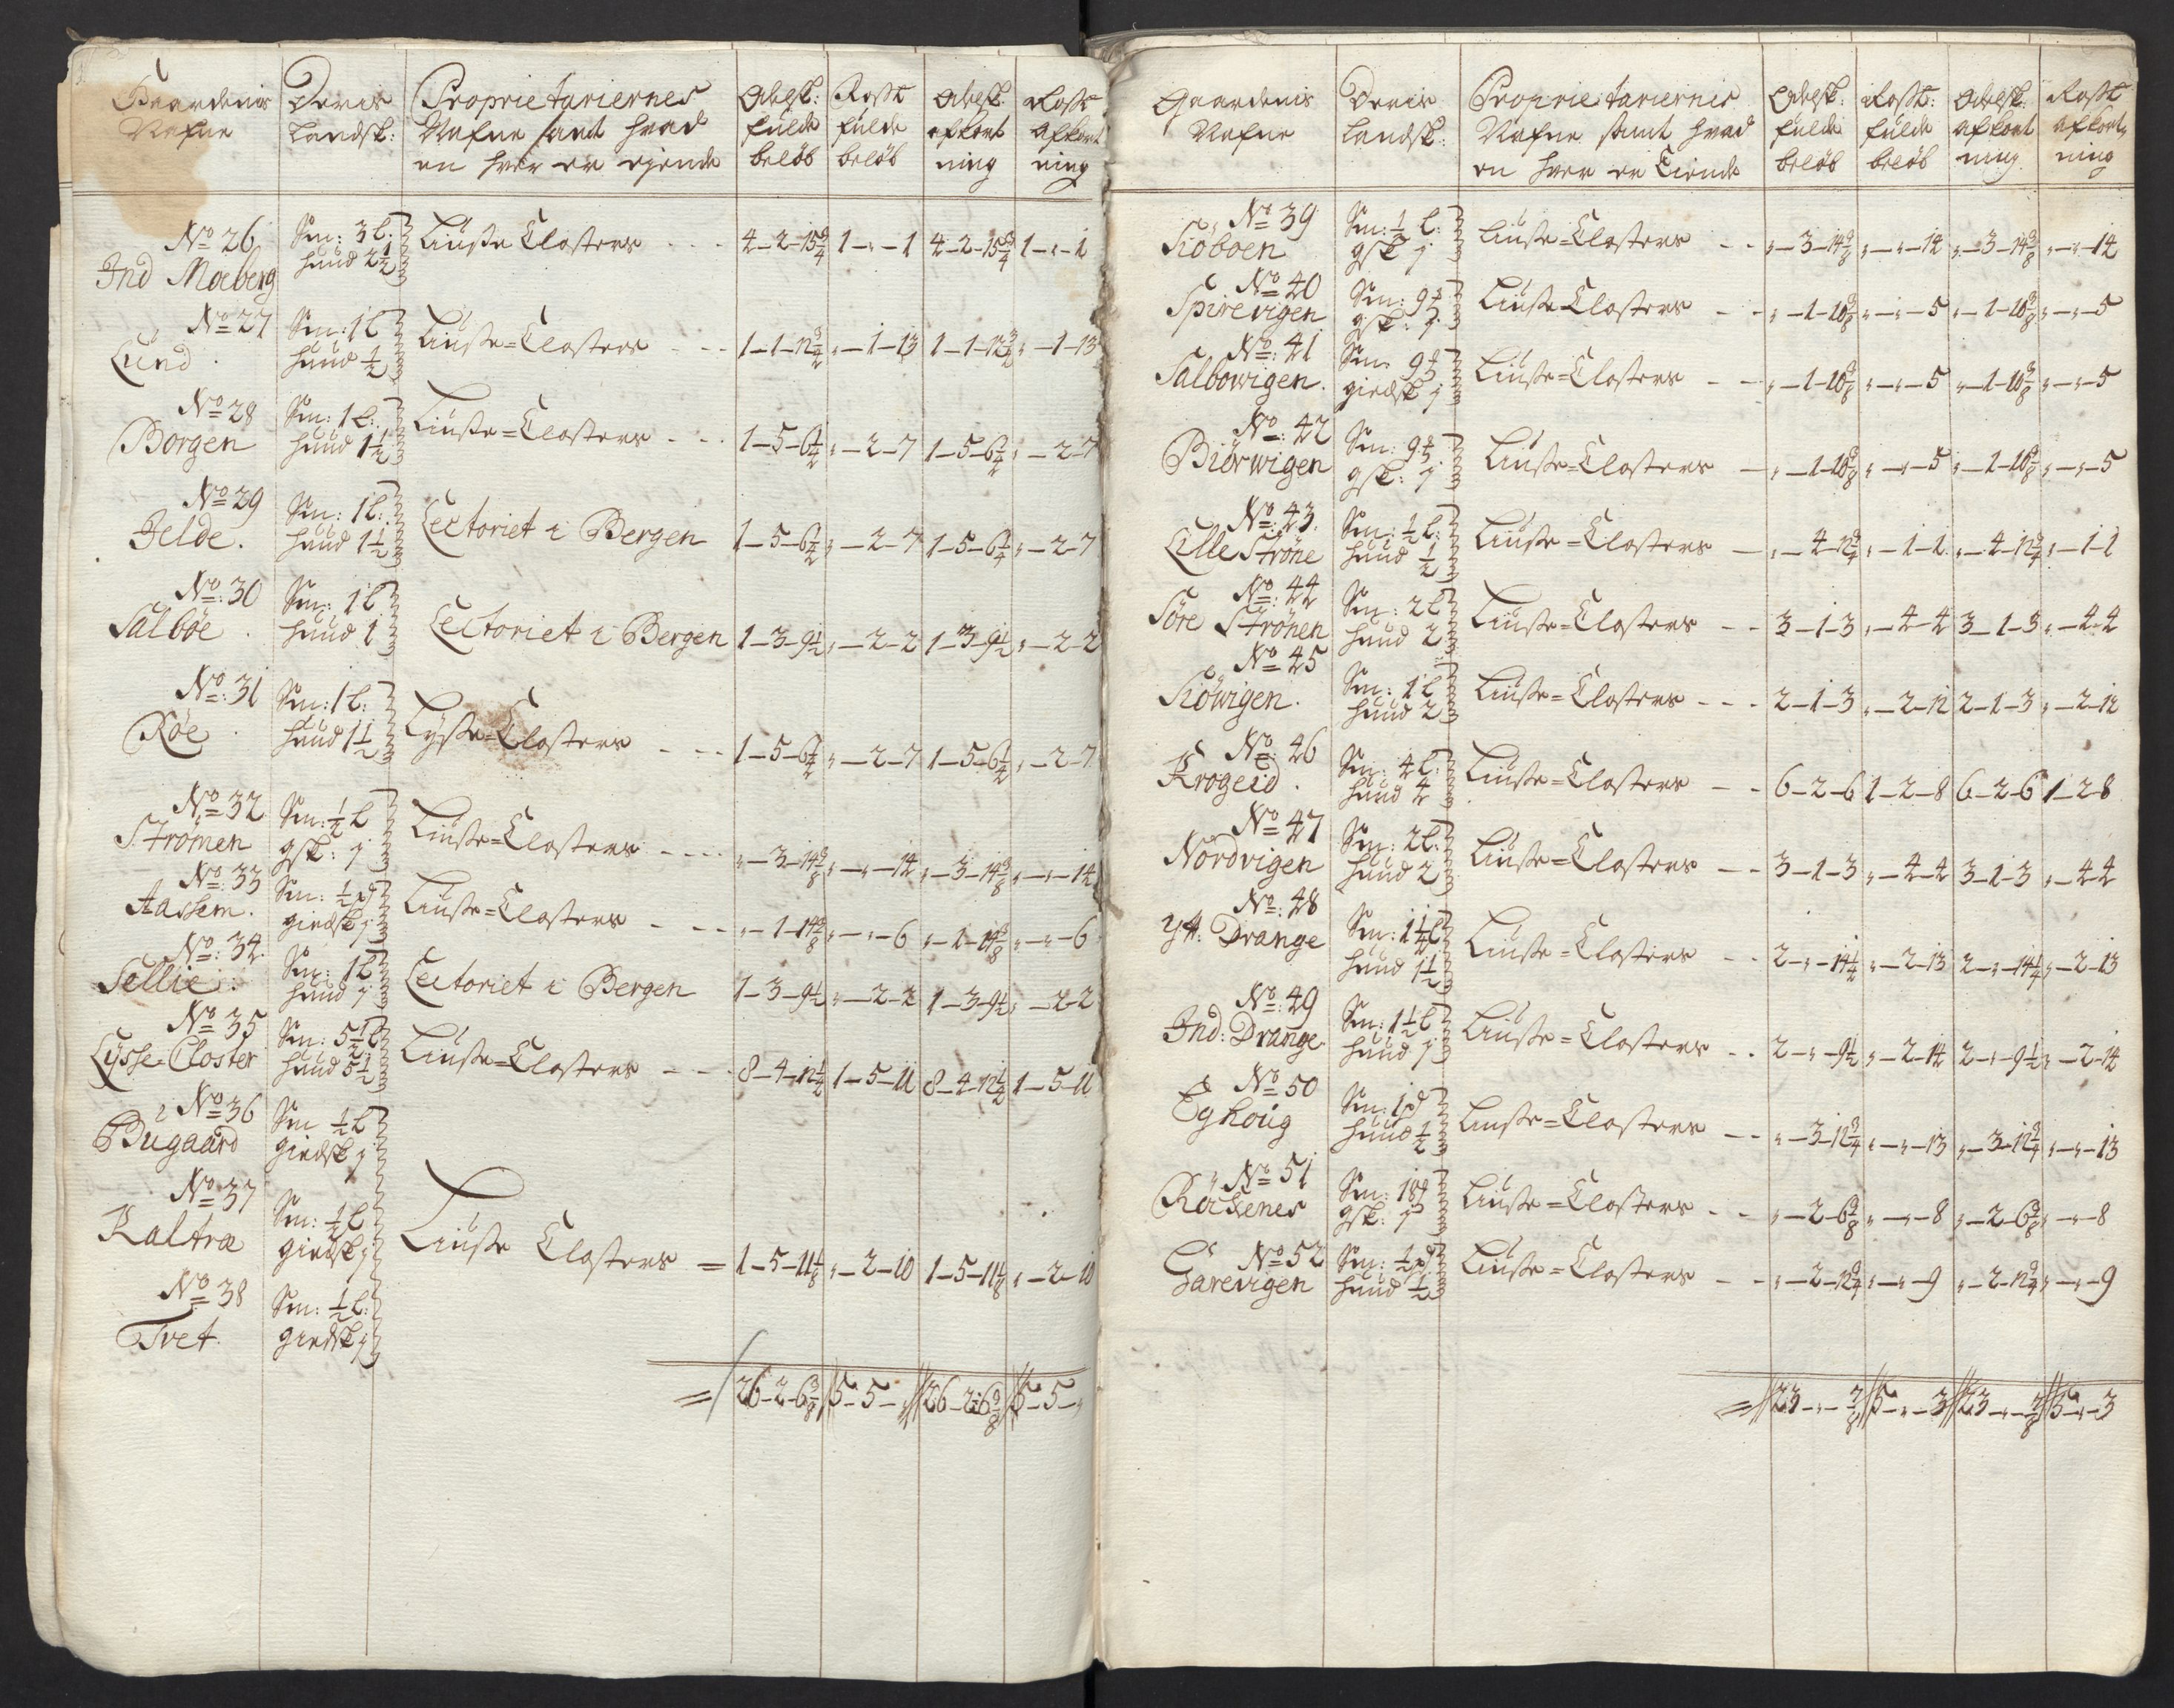 Gaardenis Nafne | Deris Landsk: | Proprietariernes Nafne samt hvad en hver er ejende | Odelsk: fulde beløb | Rostt: fulde beløb | Odelsk: afkortning | Rostt: afkortning
No 26 Ind Moberg | Sm: 3 l: huud 2 1/2 | Liuße Closters | 4-2-15 3/4 | 1-"-1 | 4-2-15 3/4 | 1-"-1
No 27 Lund | Sm: 1 l huud 1/2 | Liuße=Closters | 1-1-12 3/4 | "-1-13 | 1-1-12 3/4 | "-1-13
No 28 Borgen | Sm: 1 l: huud 1 1/2 | Liuße=Closters | 1-5-6 1/4 | "-2-7 | 1-5-6 1/4 | "-2-7
No 29 Jelde. | Sm: 1 l: huud 1 1/2 | Lectoriet i Bergen | 1-5-6 1/4 | "-2-7 | 1-5-6 1/4 | "-2-7
No: 30 Salböe | Sm: 1 l huud 1 | Lectoriet i Bergen | 1-3-9 1/2 | "-2-2 | 1-3-9 1/2 | "-2-2
No: 31 Röe | Sm: 1 l: huud 1 1/2 | Lyße=Closters | 1-5-6 1/4 | "-2-7 | 1-5-6 1/4 | "-2-7
No 32 Strömen | Sm: 1/2 l gsk: j | Liuße=Closters | "-3-14 3/8 | "-"-14 | "-3-14 3/8 | "-"-14
No: 33 Aassem. | Sm: 1/2 pd giedsk j | Liuße=Closters | "-1-14 3/8 | "-"-6 | "-1-14 3/8 | "-"-6
No: 34. Sellie: | Sm: 1 l huud j | Lectoriet i Bergen | 1-3-9 1/2 | "-2-2 | 1-3-9 1/2 | "-2-2
No 35 Lysse=Closter | Sm: 5 1/2 l huud 5 1/2 | Liuße=Closters | 8-4-12 1/4 | 1-5-11 | 8-4-12 1/4 | 1-5-11
No 36 Bugaard | Sm 1/2 l giedsk j
No 37 Kaltra | Sm: 1/2 l giedsk j | Liuße Closters = | 1-5-11 1/8 | "-2-10 | 1-5-11 1/8 | "-2-10
No 38 Tvet. | Sm: 1/2 l: giedsk j
= 26-2-6 3/8 | 5-5-" | 26-2-6 3/8 | 5-5-"
Gaardenis Nafne | Deris Landsk: | Proprietariernis Nafne samt hvad en hver er Eiende | Odelsk: fulde beløb | Rostt: fulde beløb | Odelsk: afkortning | Rostt afkortning
No 39 Siöboen | Sm: 1/2 l: gsk j | Liuße=Closters | "-3-14 3/8 | "-"-14 | "-3-14 3/8 | "-"-14
No 40 Spirevigen | Sm: 9 gsk: j | Liuße Closters | "-1-10 3/8 | "-"-5 | "-1-10 3/8 | "-"-5
No: 41 Salbowigen. | Sm: 9 giedsk j | Liuße=Closters | "-1-10 3/8 | "-"-5 | "-1-10 3/8 | "-"-5
No: 42 Biörwigen | Sm: 9 gsk: j | Liuße=Closters | "-1-10 3/8 | "-"-5 | "-1-10 3/8 | "-"-5
No: 43. Lille Ströne | Sm: 1/2 l: huud 1/2 | Liuße=Closters | "-4-12 3/4 | "-1-1 | "-4-12 3/4 | "-1-1
No: 44 Söre Strönen | Sm: 2 l huud 2 | Liuße=Closters | 3-1-3 | "-4-4 | 3-1-3 | "-4-4
No: 45 Siöwigen. | Sm: 1 l huud 2 | Liuße=Closters | 2-1-3 | "-2-12 | 2-1-3 | "-2-12
No: 46 Krogeid. | Sm: 4 l: huud 4 | Liuße=Closters | 6-2-6 | 1-2-8 | 6-2-6 | 1-2-8
No: 47 Nordvigen | Sm: 2 l: huud 2 | Liuße=Closters | 3-1-3 | "-4-4 | 3-1-3 | "-4-4
No: 48 Ytt: Drange | Sm: 1 1/4 l huud 1 1/2 | Liuße=Closters | 2-"-14 1/4 | "-2-13 | 2-"-14 1/4 | "-2-13
No: 49 Ind: Drange. | Sm: 1 1/2 l huud j | Liuße=Closters | 2-"-9 1/2 | "-2-14 | 2-"-9 1/2 | "-2-14
No 50 Eghoug | Sm: 1 pd huud 1/2 | Liuße=Closters | "-3-12 3/4 | "-"-13 | "-3-12 3/4 | "-"-13
No 51 Röchenes | Sm: 18 gsk: j | Liuße=Closters | "-2-6 3/8 | "-"-8 | "-2-6 3/8 | "-"-8
No 52 Garevigen | Sm: 1/2 pd huud 1/2 | Liuße=Closters | "-2-12 3/4 | "-"-9 | "-2-12 3/4 | "-"-9
= 23-"-7/8 | 5-"-3 | 23-"-7/8 | 5-"-3